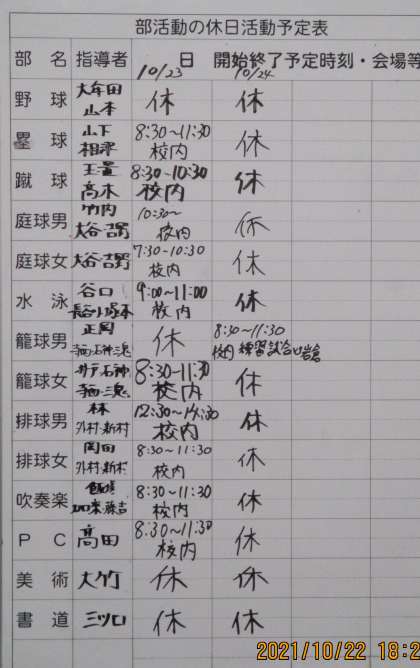 部活動の休日活動予定表
部 名 指導者 日 開始終了予定時刻・会場等
10/23 10/24
野 球 大牟田 休 休
山本
塁 球 山下 8:30~11:30 休
相澤 校内
蹴 球 玉置 8:30~10:30 休
高木 校内
庭球男 竹内 10:30~ 休
大谷・吉野 校内
庭球女 大谷・吉野 7:30-10:30 休
校内
水 泳 谷口 9:00~11:00 休
長谷川・塚本 校内
籠球男 正岡 休 8:30~11:30
石神 校内 練習試合
籠球女 石神 8:30-11:30 休
校内
排球男 林 12:30~14:30 休
外村・新村 校内
排球女 岡田 8:30~11:30 休
外村・新村 校内
吹奏楽 8:30~11:30 休
校内
PC 高田 8:30~11:30 休
校内
美 術 大竹 休 休
書 道 三ツ口 休 休
2021/10/22 18:2